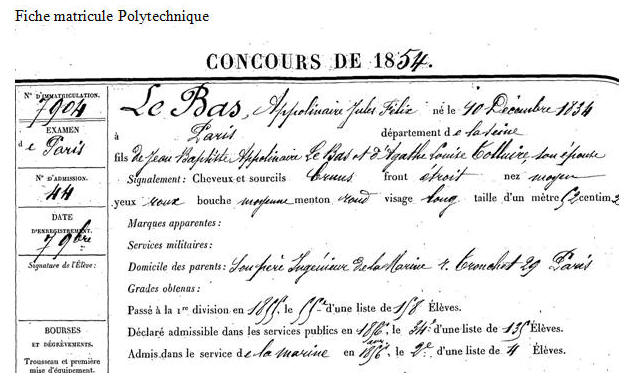 Fiche matricule Polytechnique
CONCOURS DE 1854.
N° D'IMMATRICULATION.
7904
EXAMEN
de Paris
N° D'ADMISSION.
44
DATE
D'ENREGISTREMENT.
7 9bre
Signature de l'Élève:
BOURSES
ET DÉGRÈVEMENTS.
Trousseau et première
mise d'équipement.
Le Bas, Appolinaire Jules Félix né le 10 Décembre 1834
à Paris département de la Seine
fils de Jean Baptiste Appolinaire Le Bas et d'Agathe Louise son épouse
Signalement: Cheveux et sourcils bruns front étroit nez moyen
yeux roux bouche moyenne menton rond visage long taille d'un mètre 52 centim.
Marques apparentes:
Services militaires:
Domicile des parents: Son père Ingénieur de la Marine r. Tronchet 29 Paris
Grades obtenus:
Passé à la 1re division en 1855. le d'une liste de 158 Élèves.
Déclaré admissible dans les services publics en 1856. le 34e d'une liste de 135 Élèves.
Admis dans le service de la marine en 1856. le 2e d'une liste de 4 Élèves.